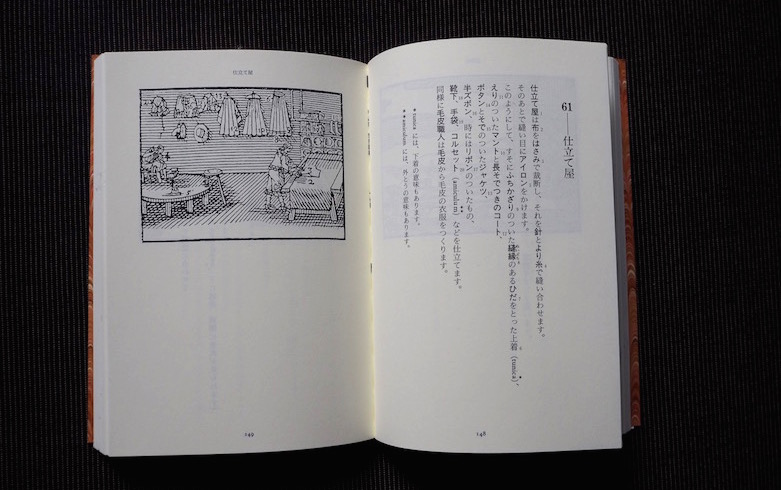 61 仕立て屋
仕立て屋は布をはさみで裁断し、それを針とより糸で縫い合わせます。
そのあとで縫い目にアイロンをかけます。
このようにして、すそにふちかざりのついた縫縁のあるひだをとった上着（tunica）*、
えりのついたマントと長そでつきのコート、
ボタンとそでのついたジャケツ、
半ズボン、時にはリボンのついたもの、
靴下、手袋、コルセット（amiculum）**などを仕立てます。
同様に毛皮職人は毛皮から毛皮の衣服をつくります。
* tunica には、下着の意味もあります。
** amiculum には、外とうの意味もあります。
148
仕立て屋
149